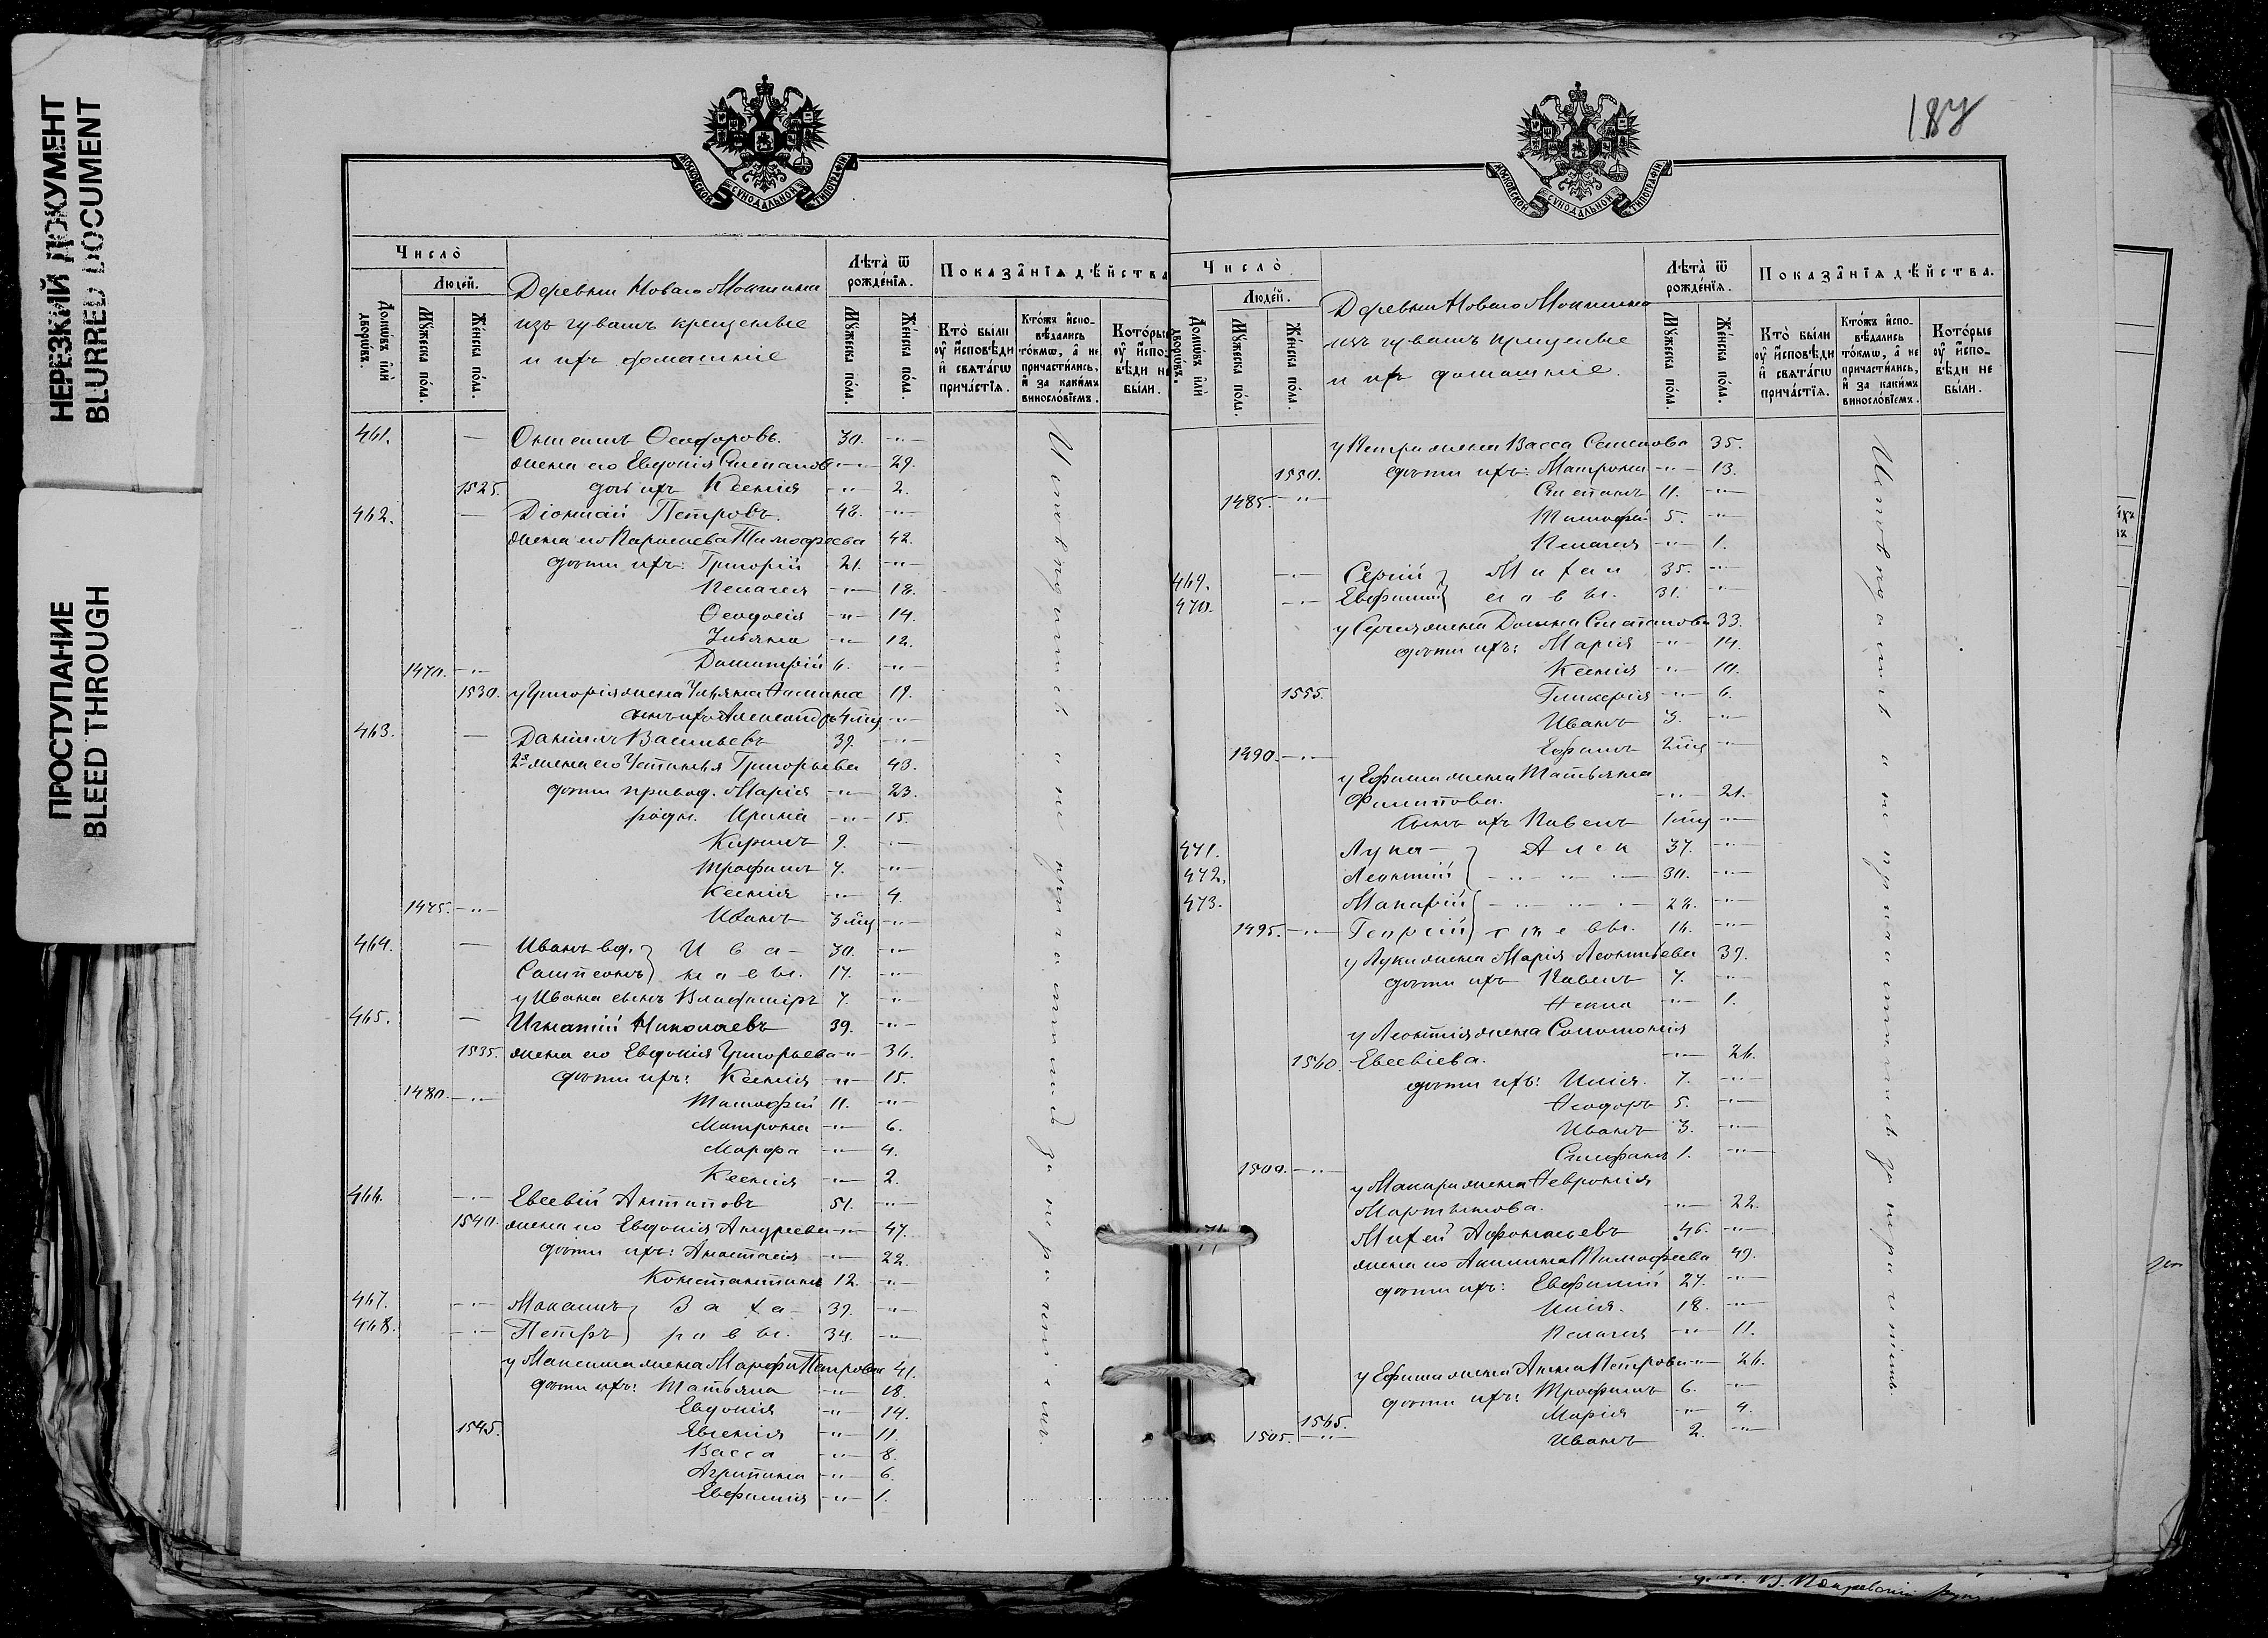 НЕРЕЗКИЙ ДОКУМЕНТ
BLURRED DOCUMENT
ПРОСТУПАНИЕ
BLEED THROUGH
МОСКОВСКОЙ СУНОДАЛЬНОЙ ТИПОГРАФІИ
Число̀
Людей.
Домѡвъ и҆лѝ дворѡвъ.
Мꙋжеска по́ла.
Же́нска по́ла.
Деревни Новаго
изъ чувашъ крещеные
и ихъ домашніе
Лѣта̀ ѿ рожде́нїѧ.
Мꙋжеска по́ла.
Же́нска по́ла.
Показа̂нїѧ дѣ́йства
Кто̀ бы́ли ᲂу҆ и҆сповѣди и҆ свѧта́гѡ прича́стїѧ.
Кто́жъ и҆спо-вѣдались то́кмѡ, а҆ не причасти́лись, и҆ за каки́мъ винослόвїемъ.
Кото́рые ᲂу҆ и҆спо-вѣди не бы́ли.
461. — Ѳеодоровъ. 30. -"-
жена его Евдокія Степанова -"- 29.
1525. дочь ихъ Ксенія -"- 2.
462. — Петровъ. 48. -"-
жена его Тимофеева 42.
дѣти ихъ: Григорій 21. -"-
Пелагея -"- 18.
Ѳеодосія -"- 14.
Ульяна -"- 12.
1470. -"- Димитрій 6. -"-
1530. у Григорія жена Ульяна 19.
сынъ ихъ Александръ 4 мц -"-
463. — Даніилъ Васильевъ 39. -"-
2я жена его Устинья Григорьева 43.
дѣти привод. Марія -"- 23.
родн. Ирина -"- 15.
Кирилъ 9. -"-
Трофимъ 7. -"-
Ксенія -"- 4.
1475. -"- Иванъ 3 мц -"-
464. — Иванъ вд. } Ива- 30. -"-
Сампсонъ } новы. 17. -"-
у Ивана сынъ Владиміръ 7. -"-
465. — Игнатій Николаевъ 39. -"-
1535. жена его Евдокія Григорьева -"- 36.
дѣти ихъ: Ксенія -"- 15.
1480. -"- Тимофей 11. -"-
Матрона -"- 6.
Марфа -"- 4.
Ксенія -"- 2.
466. -"- Евсевій Антиповъ 51. -"-
1540. жена его Евдокія Андреева -"- 47.
дѣти ихъ: Анастасія -"- 22.
Константинъ 12. -"-
467. -"- Максимъ } Заха- 39. -"-
468. -"- Петръ } ровы. 34. -"-
у Максима жена Марфа Петрова 41.
дѣти ихъ: Татьяна -"- 18.
Евдокія -"- 14.
1545. Евгенія -"- 11.
Васса -"- 8.
Агрипина -"- 6.
Евфимія -"- 1.
187
МОСКОВСКОЙ СУНОДАЛЬНОЙ ТИПОГРАФІИ
Число̀
Люде́й.
Домѡвъ и҆лѝ дворѡвъ.
Мꙋжеска по́ла.
Же́нска по́ла.
Деревни Новаго
изъ чувашъ крещеные
и ихъ домашніе.
Лѣта̀ ѿ рожде́нїѧ.
Мꙋжеска по́ла.
Же́нска по́ла.
Показа̂нїѧ дѣ́йства.
Кто̀ бы́ли ᲂу҆ и҆сповѣди и҆ свѧта́гѡ прича́стїѧ.
Кто́жъ и҆спо-вѣдались то́кмѡ, а҆ не причасти́лись, и҆ за каки́мъ винослόвїемъ.
Кото́рые ᲂу҆ и҆спо-вѣди не бы́ли.
у Петра жена Васса Семенова 35.
1550. дѣти ихъ: Матрона -"- 13.
1485. -"- Степанъ 11. -"-
Тимофей 5. -"-
Пелагея -"- 1.
469. -"- Сергій } Михаи 35. -"-
470. -"- Евфимій } ловы. 31. -"-
у Сергія жена Домна Степанова 33.
дѣти ихъ: Марія -"- 14.
Ксенія -"- 10.
1555. Гликерія -"- 6.
Иванъ 3. -"-
1490. -"- Ефимъ 2 мц -"-
у Ефима жена Татьяна
Филипова. -"- 21.
сынъ ихъ Павелъ 1 мц -"-
471. Лука } Алек 37. -"-
472. Леонтій } 30. -"-
473. Макарій } 22. -"-
1495. -"- Георгій } 16. -"-
у Луки жена Марія Леонтьева 39.
дѣти ихъ Павелъ 7. -"-
-"- 1.
у Леонтія жена Соломонія
1560. Евсевіева. -"- 26.
дѣти ихъ: Илія. 7. -"-
Ѳеодоръ 5. -"-
Иванъ 3. -"-
1500. -"- Стефанъ 1. -"-
у Макарія жена Февронія
Мартынова. -"- 22.
Михей Афонасьевъ 46. -"-
жена его Акилина Тимофеева 49.
дѣти ихъ: Евфимій 27. -"-
Илія. 18. -"-
Пелагея -"- 11.
у Ефима жена Анна Петрова -"- 26.
дѣти ихъ: Трофимъ 6. -"-
1565. Марія -"- 4.
1505. -"- Иванъ 2. -"-